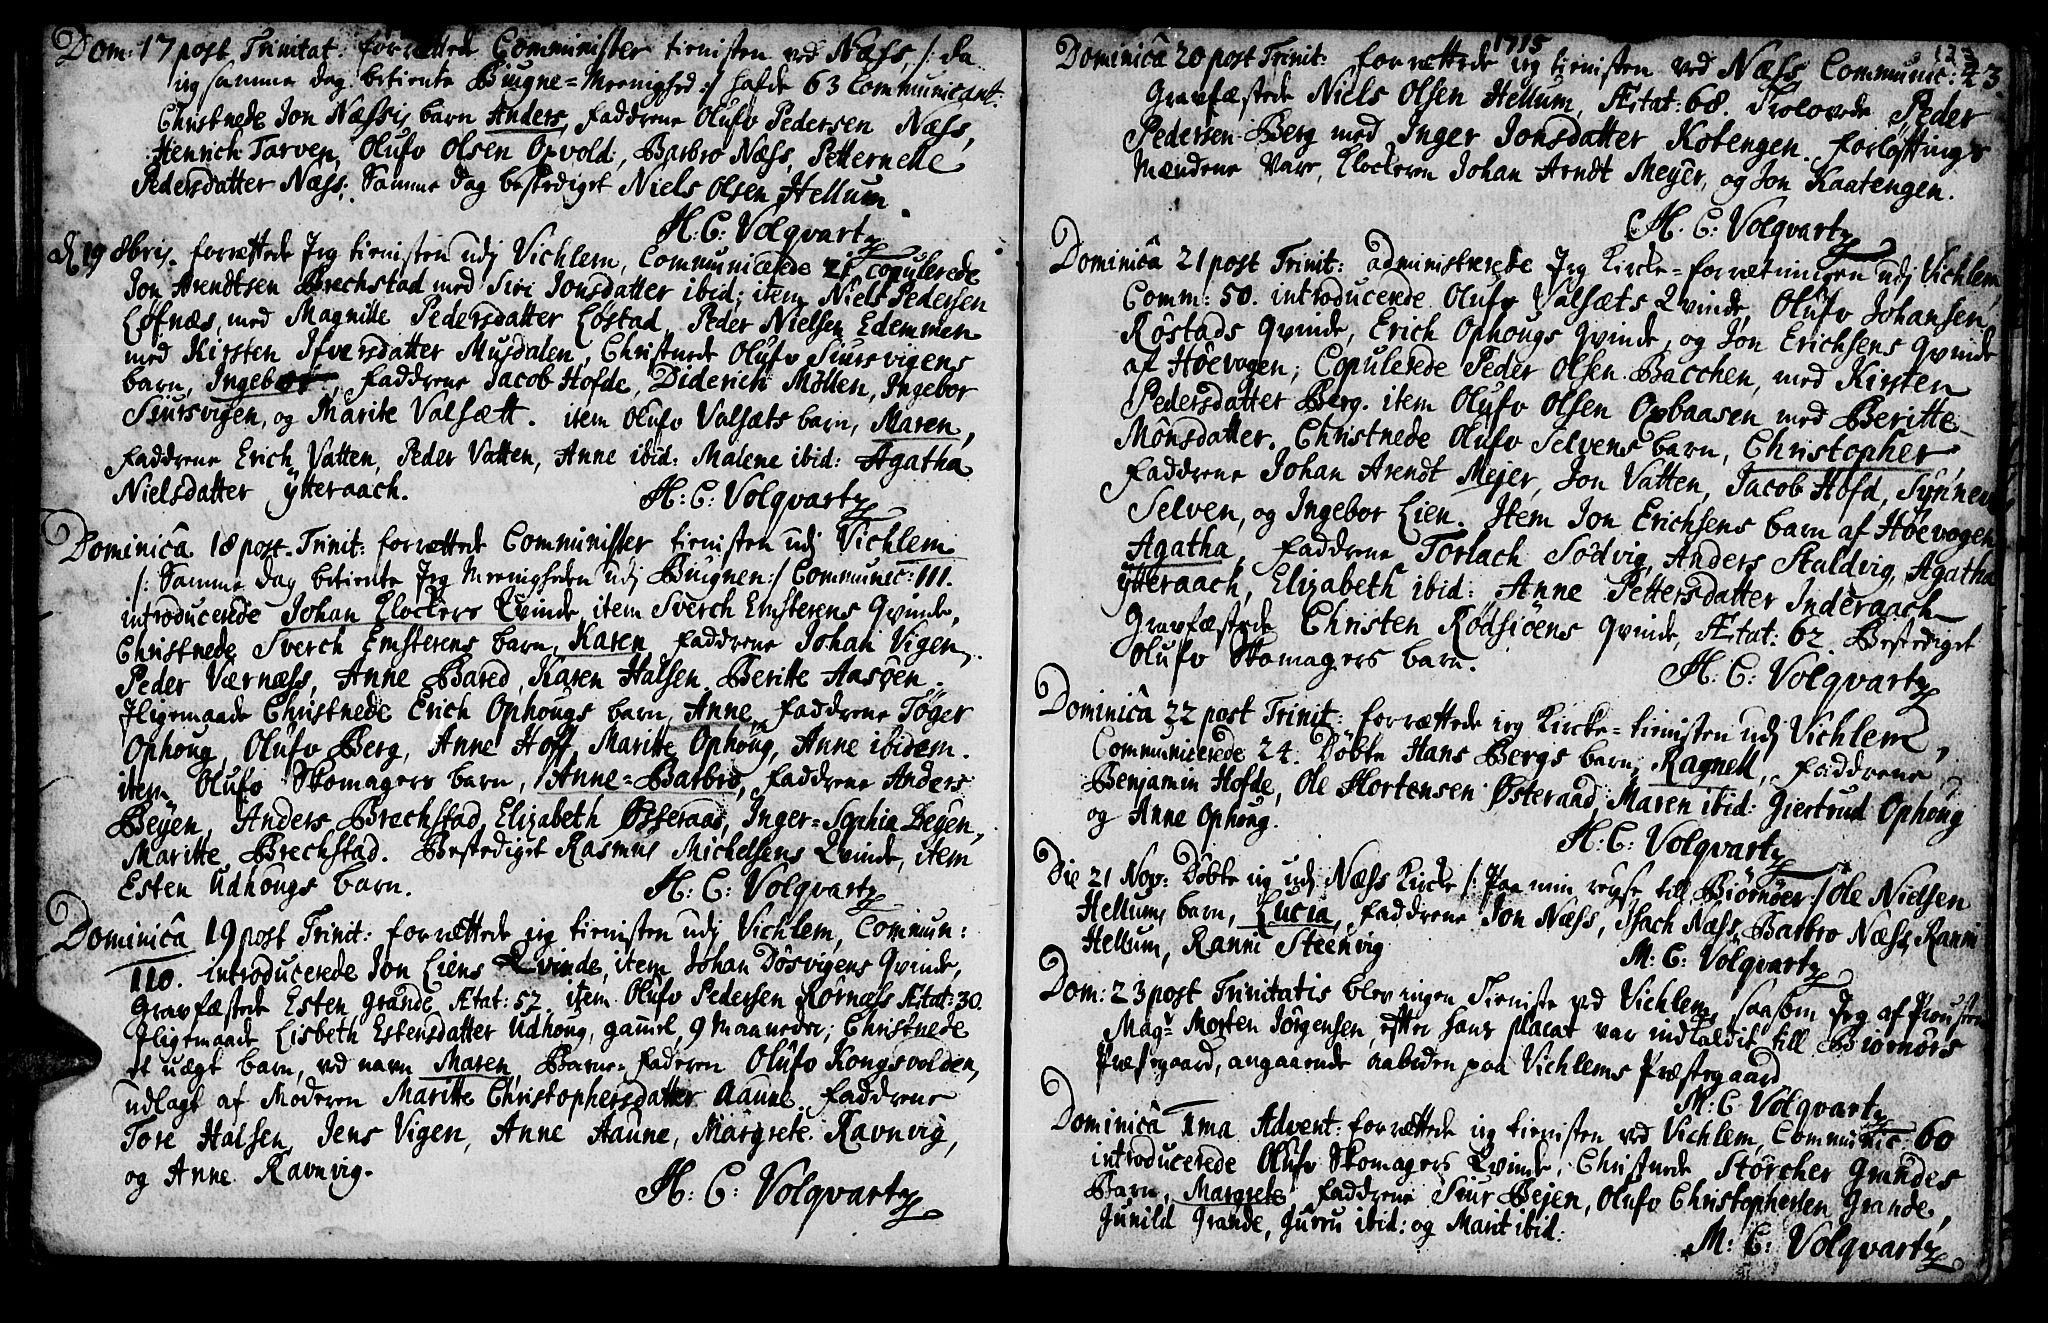 Dom: 17 post Trinitat: forrettede Comminister tienisten ved Næss, /: da
ieg samme dag betiente Biugne=Meenighed :/ hafde 63 Communicant:
Christnede Jon Næssis barn Anders, faddrene Olufv Pedersen Næss,
Henrich Tarven, Olufv Olsen Opvold, Barbro Næss, Petternelle
Pedersdatter Næss: Samme dag bestediget Niels Olsen Hellum.
H: C: Volqvartz
d 19 8bris. forrettede Jeg tienisten udj Vichlem, Communicerede 21 copulerede
Jon Arendtsen Brechstad med Siri Jonsdatter ibid; item Niels Pedersen
Löfnæs, med Magnille Pedersdatter Löstad, Peder Nielsen Edemmen
med Kirsten Ifversdatter Musdalen, Christnede Olufv Siursvigens
barn, Ingebor, faddrene Jacob Hofde, Diderich Mölten, Ingebor
Siursvigen, og Marite Valsætt. item Olufv Valsæts barn, Maren,
faddrene Erich Vatten, Peder Vatten, Anne ibid: Malene ibid: Agatha
Nielsdatter ytteraach.
H: C: Volqvartz
Dominica 18 post Trinit: forrættede Comminister tienisten udj Vichlem
/: Samme dag betiente Jeg Meenigheden udj Buignen :/ Communic: 111.
introducerede Johan Clockers Qvinde, item Sverch Emsterens Qvinde,
Christnede Sverch Emsterens barn, Karen, faddrene Johan Vigen,
Peder Værnæss, Anne Bared, Karen Halsen, Beritte Aasöen.
Jligemaade Christnede Erich Ophougs barn, Anne, faddrene Töger
Ophoug, Olufv Berg, Anne Hoff, Maritte Ophoug, Anne ibidem.
item Olufv Skomagers barn, Anne=Barbro, faddrene Anders
Beyen, Anders Brechstad, Elizabeth Østeraad, Inger=Sophia Beyen,
Maritte Brechstad. Bestediget Rasmus Michelsens Qvinde, item
Esten Udhougs barn.
H: C: Volqvartz
Dominica 19 post Trinit: forrættede jeg tienisten udj Vichlem, Commun:
110. introducerede Jon Liens Qvinde, item Johan Dösvigens Qvinde,
Gravfæstede Esten Grande Ætat: 52 item Olufv Pedersen Rörnæss Ætat: 30.
Jligemaade Lisbeth Estensdatter Udhoug, gamel 9 Maaneder; Christnede
et uægt barn, ved navn Maren, Barne=faderen Olufv Kongsvolden,
udlagt af Moderen Maritte Christophersdatter Aaune. faddrene
Tore Halsen, Jens Vigen, Anne Aaune, Margrete Ravnvig,
og Anne Ravnvig.
H: C: Volqvartz
1715
123
Dominicâ 20 post Trinit: forrettede jeg tienisten ved Næss Communic: 43
Gravfæstede Niels Olsen Hellum, Ætat: 68. Trolovede Peder
Pedersen Berg med Inger Jonsdatter Kotengen. forlöftings
Mændene vare, Clockeren Johan Arndt Meyer, og Jon Kaatengen.
H. C: Volqvartz
Dominicâ 21 post Trinit: administrerede Jeg Kircke=forrætningen udj Vichlem
Comm: 50. introducerede Olufv Valsæts Qvinde, Olufv Johansen
Röstads Qvinde, Erich Ophougs Qvinde, og Jon Erichsens Qvinde
af Höevogen; Copulerede Peder Olsen Bacchen, med Kirsten
Pedersdatter Berg. item Olufv Olsen Opbaasen med Beritte
Mönsdatter. Christnede Olufv Selvens barn, Christopher,
faddrene Johan Arendt Mejer, Jon Vatten, Jacob Hofd, Synnev
Selven, og Ingebor Lien. Item Jon Erichsens barn af Höevogen
Agatha, faddrene Torlach Södvig, Anders Staldvig, Agatha
ytteraach, Elizabeth ibid: Anne Pettersdatter Inderaach
Gravfæstede Christen Rödsiöens Qvinde, Ætat: 62. Bestediget
Olufv Skomagers barn.
H. C: Volqvartz
Dominicâ 22 post Trinit: forrættede ieg Kircke=tienisten udj Vichlem,
Communicerede 24. Döbte Hans Bergs barn, Ragnell, faddrene
Benjamin Hofde, Ole Mortensen Østeraad, Maren ibid: Giertrud Ophoug
og Anne Ophoug.
H: C: Volqvartz
Die 21 Nov: Döbte ieg udj Næss Kircke /: paa min reyse till Biörnöer :/ Ole Nielsen
Hellums barn, Lucia, faddrene Jon Næss, Isach Næss, Barbro Næss, Ranni
Hellum, Ranni Steenvig
M: C: Volqvartz
Dom: 23 post Trinitatis blev ingen Tieniste ved Vichlem, saasom Jeg af Prousten
Magr Morten Jörgensen, efter hans placat var indkaldet till Biörnörs
Præstegaard, angaaende aaboden paa Vichlems Præstegaard
M: C Volqvartz
Dominicâ 1ma Advent: forrættede ieg tienisten ved Vichlem, Communic: 60
introducerede Olufv Skomagers Qvinde, Christnede Störcher Grandes
Barn, Margrete, faddrene Siur Bejen, Olufv Christophersen Grande,
Gunild Grande, Gurru ibid: og Marit ibid:
M: C: Volqvartz